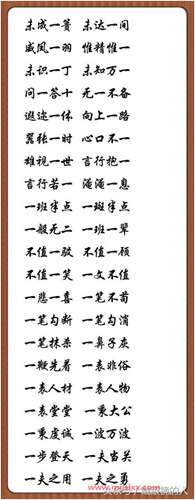 未成一篑 未达一间
威凤一羽 惟精惟一
未识一丁 未知万一
问一答十 无一不备
遐迩一体 向上一路
嚣张一时 心口不一
雄视一世 言行抱一
言行若一 淹淹一息
一班半点 一斑半点
一般无二 不值一晕
不值一驳 不值一顾
不值一笑 一文不值
一悲一喜 一笔不苟
一笔勾断 一笔勾消
一笔抹杀 一鼻子灰
一鞭先着 一表非俗
一表人材 一表人物
一表堂堂 一秉大公
一秉虔诚 一波万波
一步登天 一夫当关
一夫之用 一夫之勇